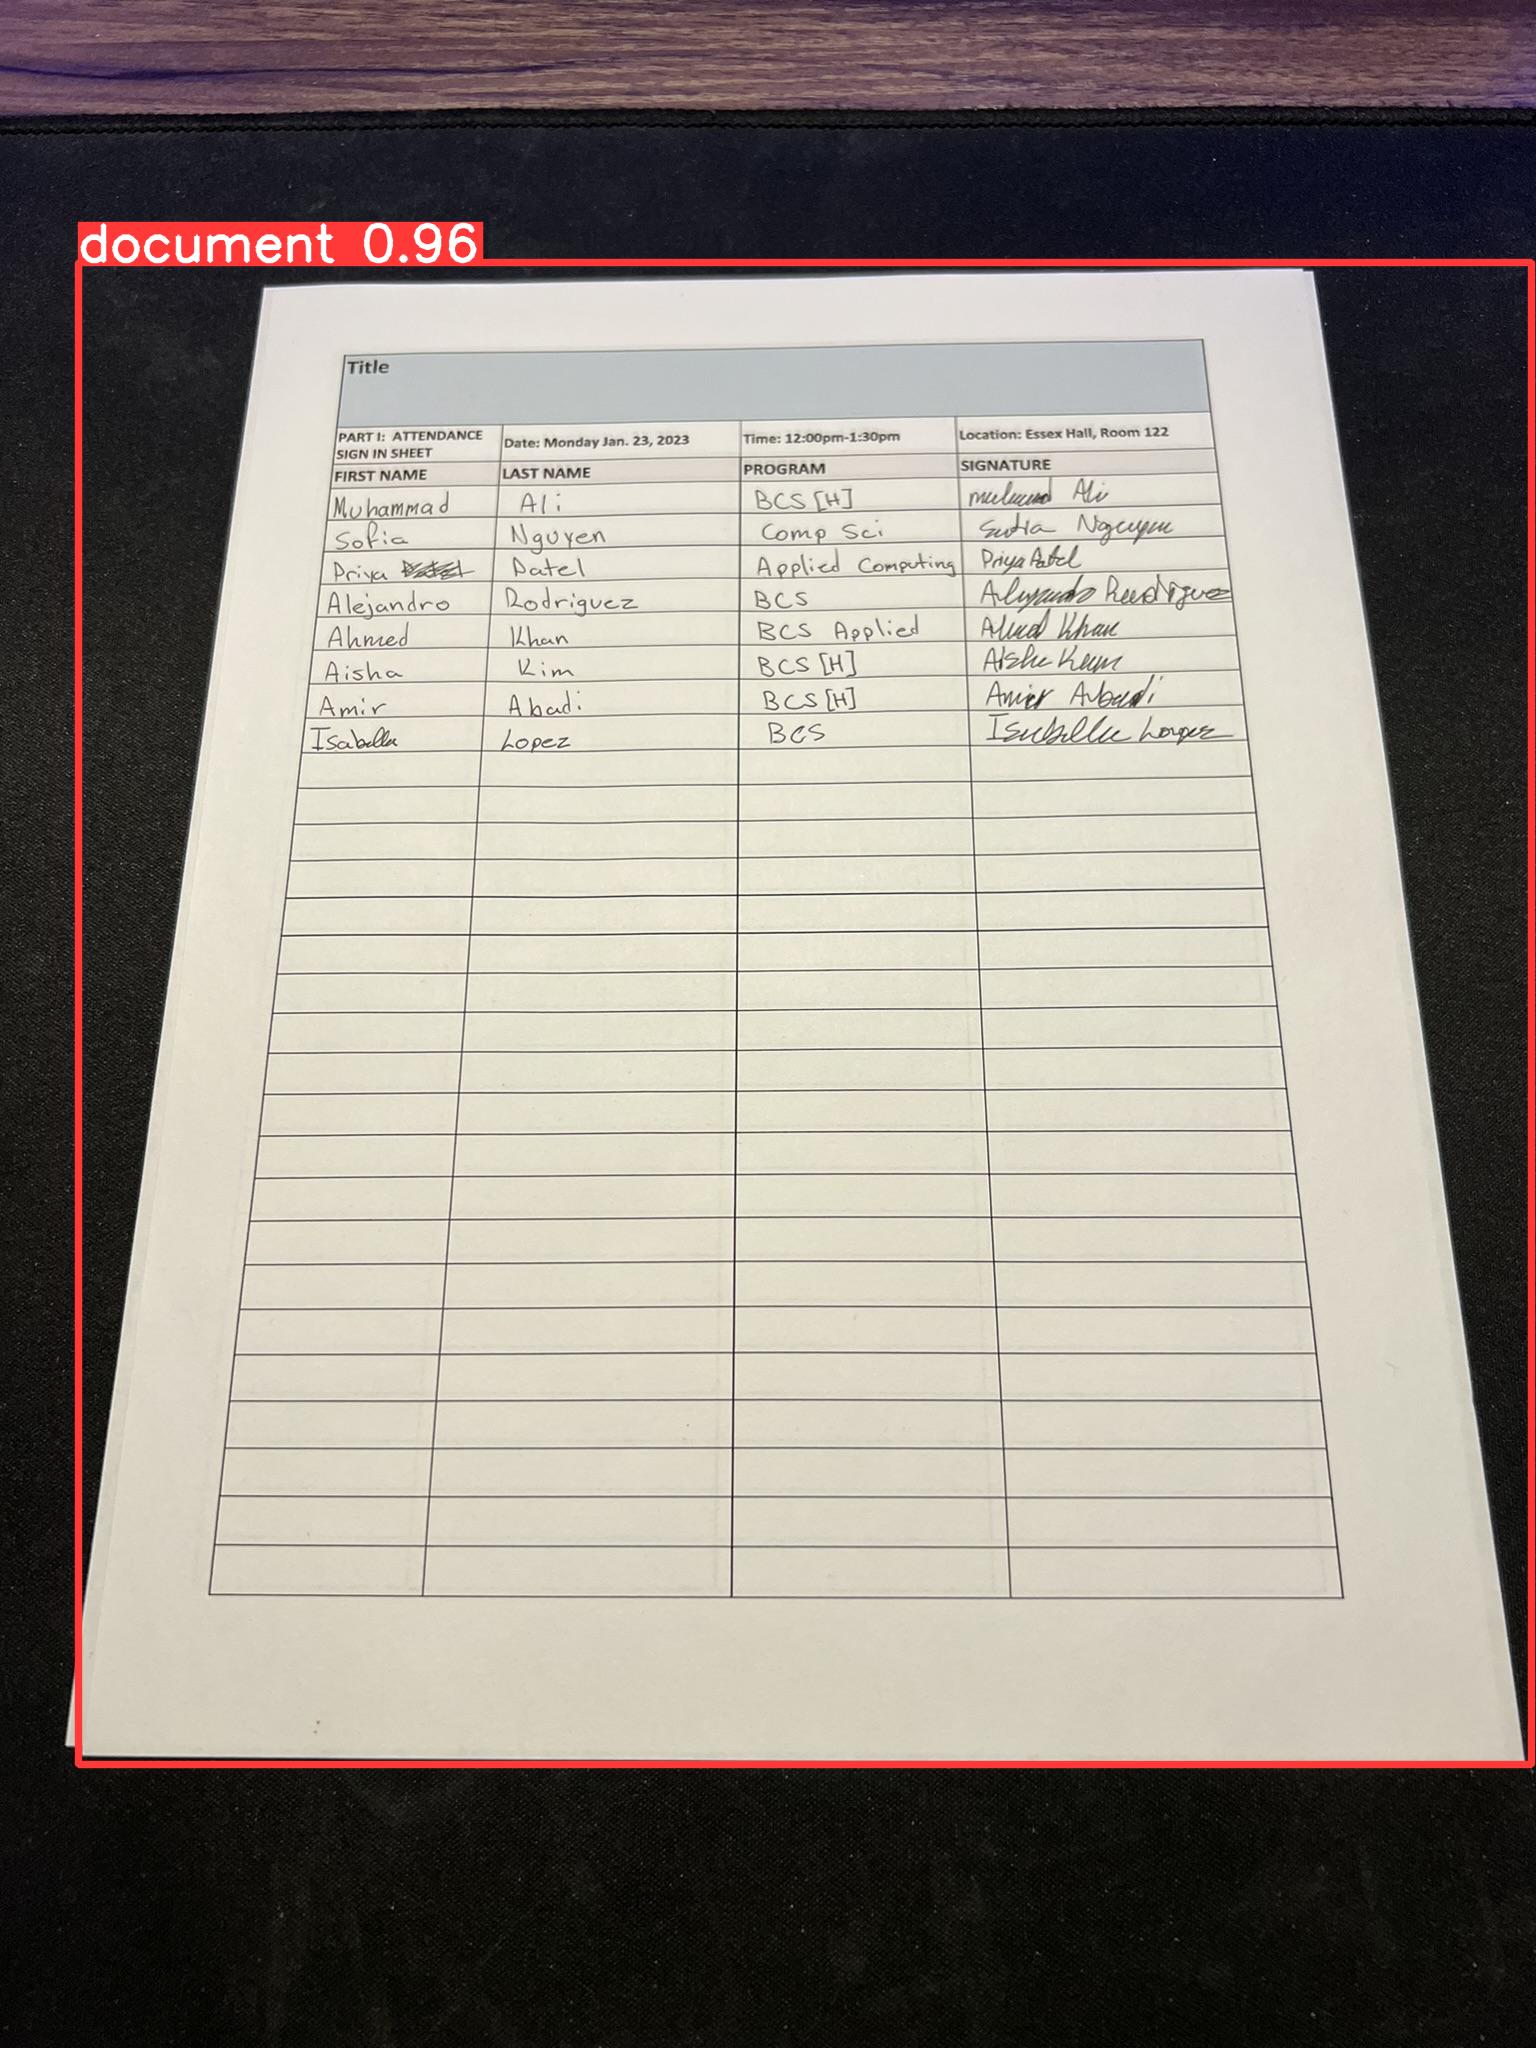 document 0.96
Title
PART I: ATTENDANCE SIGN IN SHEET Date: Monday Jan. 23, 2023 Time: 12:00pm-1:30pm Location: Essex Hall, Room 122
FIRST NAME LAST NAME PROGRAM SIGNATURE
Muhammad Ali BCS [H] Ali
Sofia Nguyen Comp Sci Nguyen
Priya Patel Applied Computing Priya Patel
Alejandro Rodriguez BCS
Ahmed Khan BCS Applied Khan
Aisha Kim BCS [H]
Amir Abadi BCS [H] Amir Abadi
Isabella Lopez BCS Isabella Lopez